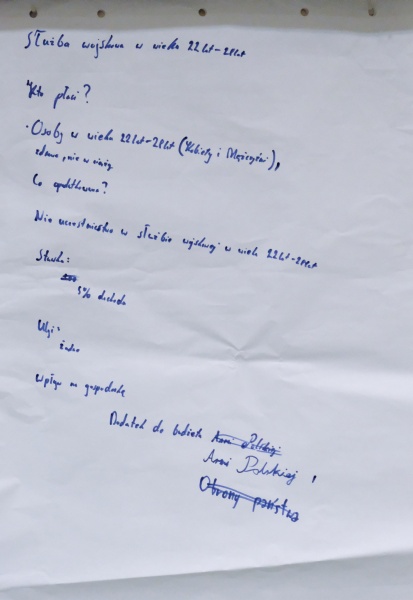 Służba wojskowa w wieku 22 lat-24lat
Kto płaci?
· Osoby w wieku 22 lat-24lat (Kobiety i Mężczyźni),
zdrowe, nie w ciąży
Co opodatkowano?
Nie uczestnictwo w służbie wojskowej w wieku 22 lat-24lat
Stawka:
5% dochodu
Ulgi:
żadne
Wpływ na gospodarkę
Dodatek do budżetu Armii Polskiej
Armii Polskiej,
Obrony państwa